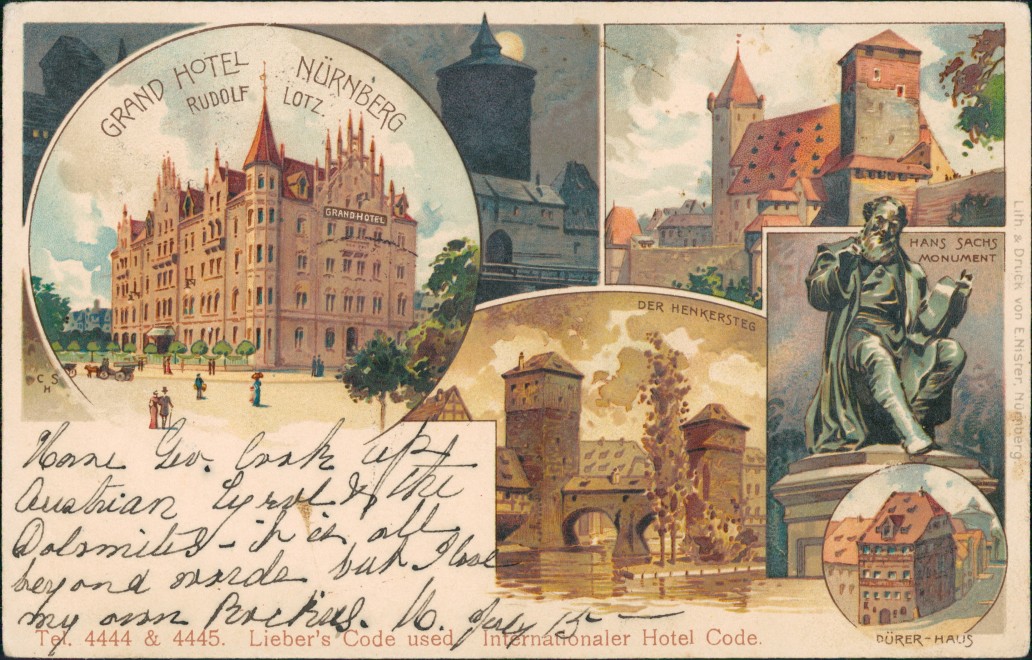 GRAND HOTEL NÜRNBERG
RUDOLF LOTZ.
GRAND-HOTEL
C S
H
DER HENKERSTEG
HANS SACHS
MONUMENT
Lith & Druck von E. Nister, Nürnberg
DÜRER-HAUS
Geo. Cook
Austrian Tyrol & the
Dolomites - it is all
beyond words but I love
my own Rockies. M. July 15
Tel. 4444 & 4445. Lieber's Code used. Internationaler Hotel Code.